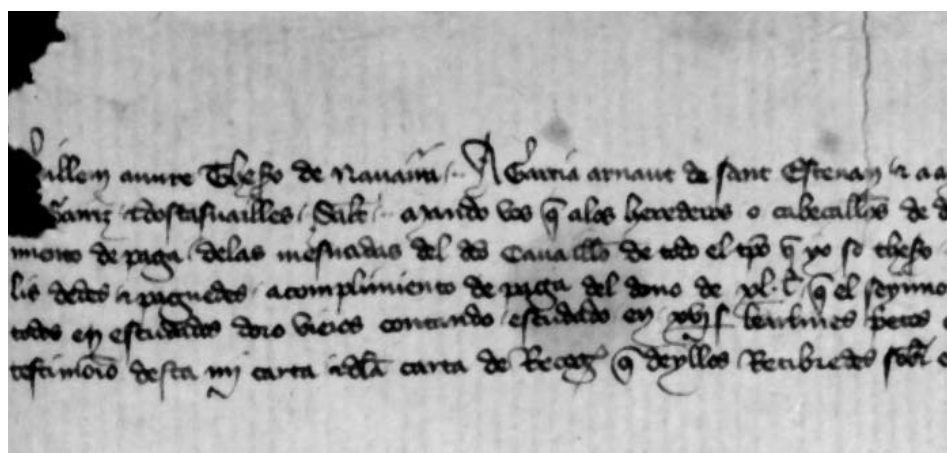 uillem aunre Theso de Nauarra. A Garcia arnaut de sant Esteuan τ a a
τ dostasuailles. Salt. mando vos q̃ alos herederos o cabeçallos de d
miento de paga. delas mesnadas del dco Cauaillo de todo el tpo q̃ yo so theso
lis dedes τ paguedes. acomplimiento de paga del dono de xl. l. q̃ el seynno
todos en escudados doro vieios contando escudado en xvj s. p̃etos
testimonio desta mi carta τ dla carta de Recog q̃ deyllos Recibredes sobr e